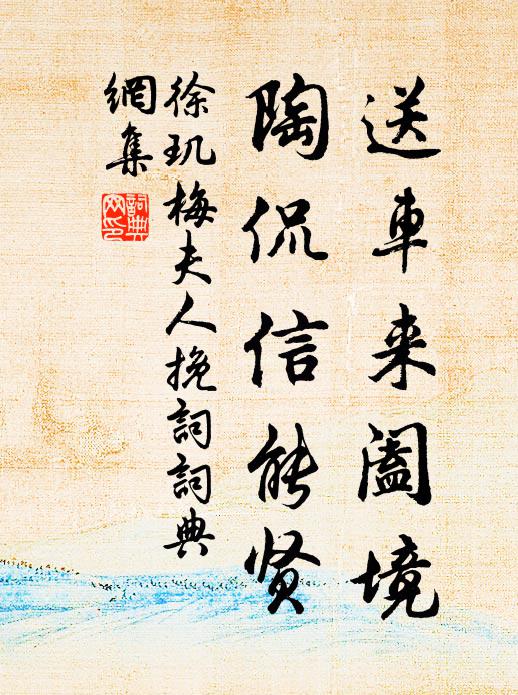 送車来阖境
陶侃信能贤
徐玑梅夫人挽詞詞典
網集
詞典
网印